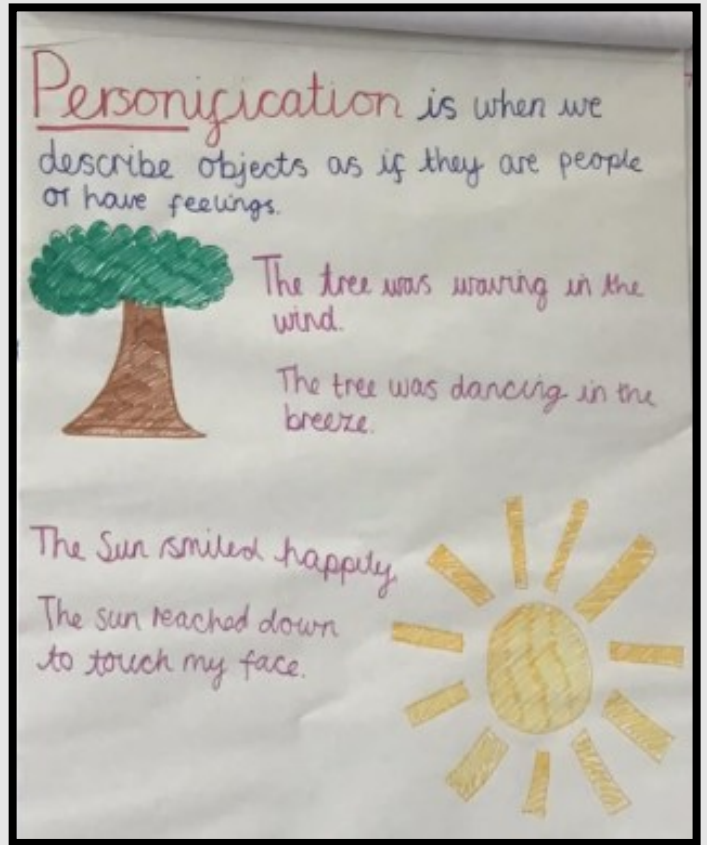 Personification is when we
describe objects as if they are people
or have feelings.
The tree was waving in the
wind.
The tree was dancing in the
breeze.
The Sun smiled happily
The sun reached down
to touch my face.